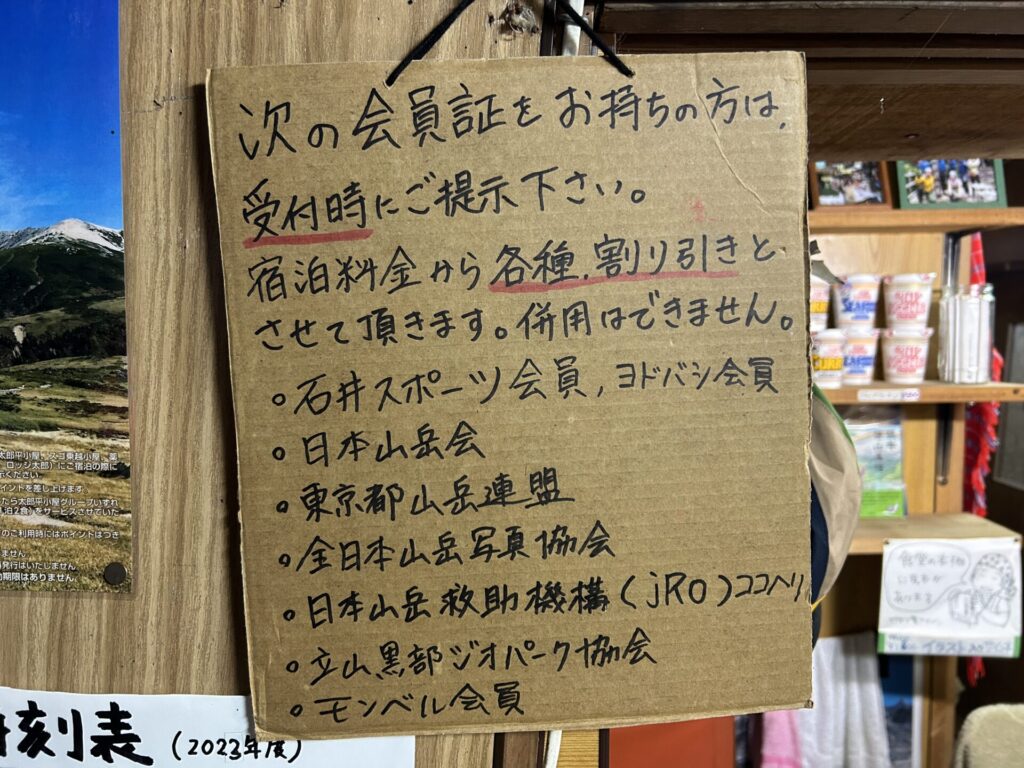 次の会員証をお持ちの方は、
受付時にご提示下さい。
宿泊料金から各種割り引きと
させて頂きます。併用はできません。
石井スポーツ会員,ヨドバシ会員
日本山岳会
東京都山岳連盟
全日本山岳写真協会
日本山岳救助機構(jRO)ココヘリ
立山黒部ジオパーク協会
モンベル会員
太郎平小屋、スゴ乗越小屋、薬
ロッジ太郎)にご宿泊の際に
ください。
イントを差し上げます
たら太郎平小屋グループいずれ
泊2食)をサービスさせていた
のご利用時にはポイントはつき
ません
発行はいたしません
期限はありません。
刻表(2023年度)